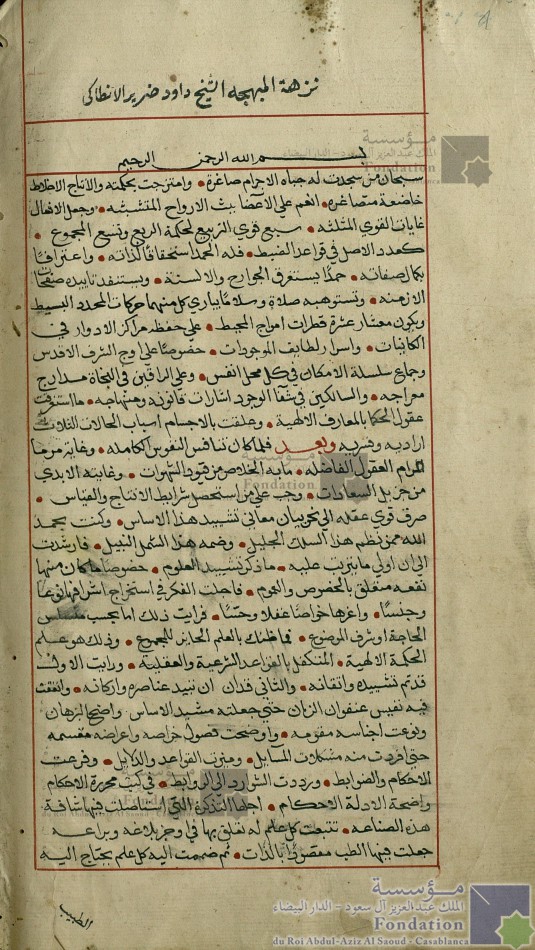 نزهة المبهجه الشيخ داود ضرير الانطاكى
بسم الله الرحمن الرحيم
سبحان من سجدت له جباه الاجرام صاغرة وامتزجت بحكمته والانتاج الاخلاط
خاضعة متصاغره اقسم على الاعضا بث الارواح المتشبثه وجعل الافعال
غايات القوي المثلثه سبع قوي التربيع لحكمة الربع وتسع المجموع
كعدد الاصل في قواعد الضبط فله الحمد استحقاقا لذاته واعترافا
بكمال صفاته حمدا يستغرق الجوارح والالسنة ويستنفد تابيده صفحات
الازمنه ونستوهبه صلاة وسلاما يباري كل منهما حركات المحدد البسيط
ويكون معشار عشرة قطرات امواج المحيط على حفظه مراكز الادوار في
الكاينات واسرار لطايف الموجودات خصوصا على اوج الشرف الاقدس
وجماع سلسلة الامكان في كل محل انفس وعلي الراقين في النجاة مدارج
معراجه والسالكين في شفا الوجود اشارات قانونه ومنهاجه ما استغرقت
عقول الحكما بالمعارف الالهية وعلقت بالاجسام اسباب الحالات الثلاث
اراديه وقسريه وبعد فلما كان تنافس النفوس الكامله وغاية مرما
مرام العقول الفاضله مابه الخلاص من قيود الشهوات وغايته الابدي
من جزيل السعادات وجب علي من استحصل شرايط الانتاج والقياس
صرف قوي عقله الي نحو بيان معاني تشييد هذا الاساس وكنت بحمد
الله ممن نظم هذا السلك الجليل وضمه هذا الشمل النبيل فارشدت
الي ان اولي ما يترتب عليه ماذكر تشييد العلوم خصوصا ما كان منها
نفعه متعلق بالخصوص والعموم فاجلت الفكر في استخراج اشرافها نوعا
وجنسا واعزها خواصا عقلا وحسا فرايت ذلك اما بحسب مسيس
الحاجة او شرف الموضوع فاظنك بالعلم الحايز للمجموع وذلك هو علم
الحكمة الالهية المتكفل بالقواعد الشرعية والعقلية ورايت الاول
قد تم تشييده واتقانه والثاني قد ان ان تبيد عناصره واركانه وانفقت
فيه نفيس عنفوان الزمان حتي جعلته مشيد الاساس واضح البرهان
ونوعت اجناسه مقومه واوضحت فصول خواصه واعراضه مقسمه
حتي افردت منه مشكلات المسايل وميزت القواعد والدلايل وفرعت
الاحكام والضوابط ورددت الشوارد الى الروابط في كتب محررة الاحكام
واضحة الادلة الاحكام اجلها التذكرة التي استاصلت فيها شافة
هذه الصناعه تتبعت كل علم له تعلق بها في وجز بلاغه وبراعه
جعلت فيها الطب مقصودا بالذات ثم ضممت اليه كل علم يحتاج اليه
الطبيب
مؤسسة
الملك عبد العزيز آل سعود - الدار البيضاء
Fondation
du Roi Abdul-Aziz Al Saoud - Casablanca